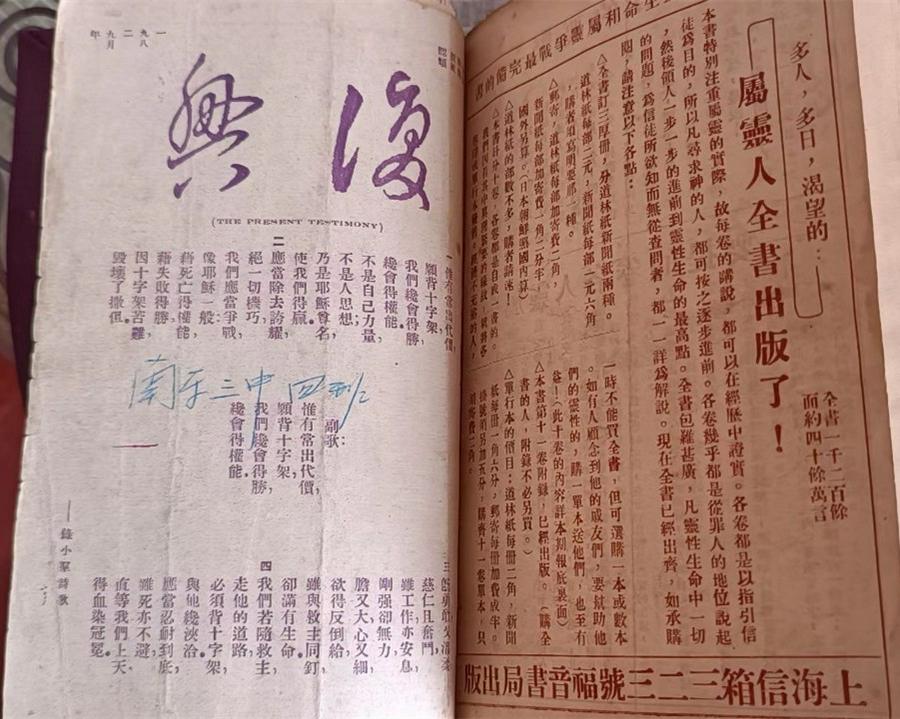 生命和屬靈爭戰最完備的書
多人，多日，渴望的：
屬靈人全書出版了！
全書一千二百餘
面約四十餘萬言
本書特別注重屬靈的實際，故每卷的講說，都可以在經歷中證實。各卷都是以指引信
徒爲目的，所以凡尋求神的人，都可按之逐步進前。各卷幾乎都是從罪人的地位說起
，然後領人一步一步的進前到靈性生命的最高點。全書包羅甚廣，凡靈性生命中一切
的問題，爲信徒所欲知而無從查問者，都一一詳爲解說。現在全書已經出齊，如承購
閱，請注意以下各點：
△全書訂三厚册，分道林紙新聞紙兩種。
道林紙每部三元，新聞紙每部二元六角
，購者須寫明要那一種。
△郵寄，道林紙每部加寄費二角，
新聞紙每部加寄費一角二分半。
國外另算。（日本朝鮮照國內算）
△道林紙的部數不多，購者請速！
一時不能買全書，但可選購一本或數本
。如有人顧念到他的戚友們，要幫助他
們的靈性的，購一單本送他們，也至有
益！（此十卷的內容詳本期報底裏面）
△本書第十一卷附錄，已經出版。（購全
書的人，附錄不必另買。）
△單行本的價目：道林紙每册二角，新聞
紙每册一角六分，郵寄每册加費成半。
掛號哨另加五分，購齊十一卷單本，只
上海信箱三二三號福音書局出版
一九二八年九月
復興
(THE PRESENT TESTIMONY)
一
惟有常出代價，
願背十字架，
我們纔會得勝
纔會得權能。
不是自己力量
不是人思想，
乃是耶穌尊名
使我們得贏。
二
應當除去誇耀
絕一切機巧，
我們應當爭戰
像耶穌一般：
藉死亡得權能，
藉失敗得勝，
因十字架苦難，
毀壞了撒但。
南平三中四班
副歌：
惟有常出代價，
願背十字架，
我們纔會得勝
纔會得權能。
三
慈仁且奮鬥，
雖工作亦安息，
剛强卻無力，
膽又大心又細，
欲得反倒給，
雖與救主同釘
卻滿有生命。
四
我們若隨救主，
走他的道路，
必須背十字架，
與他纔浹洽。
應當忍耐到底，
雖死亦不避，
直等我們上天，
得血染冠冕。
——錄小羣詩歌